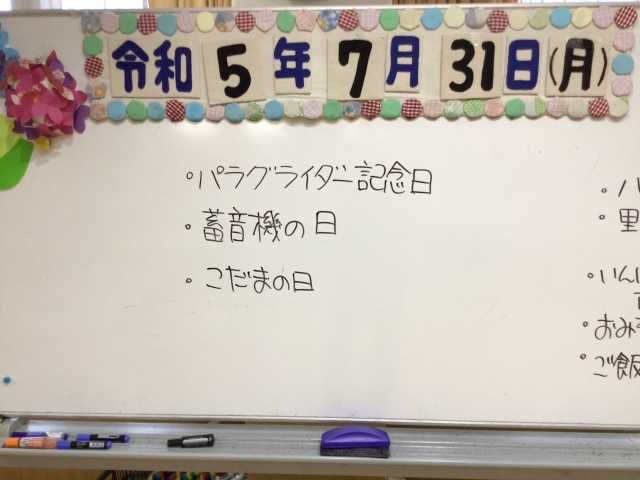 令和5年7月31日(月)
・パラグライダー記念日
・蓄音機の日
・こだまの日
・里
・いん
・おみ
・ご飯